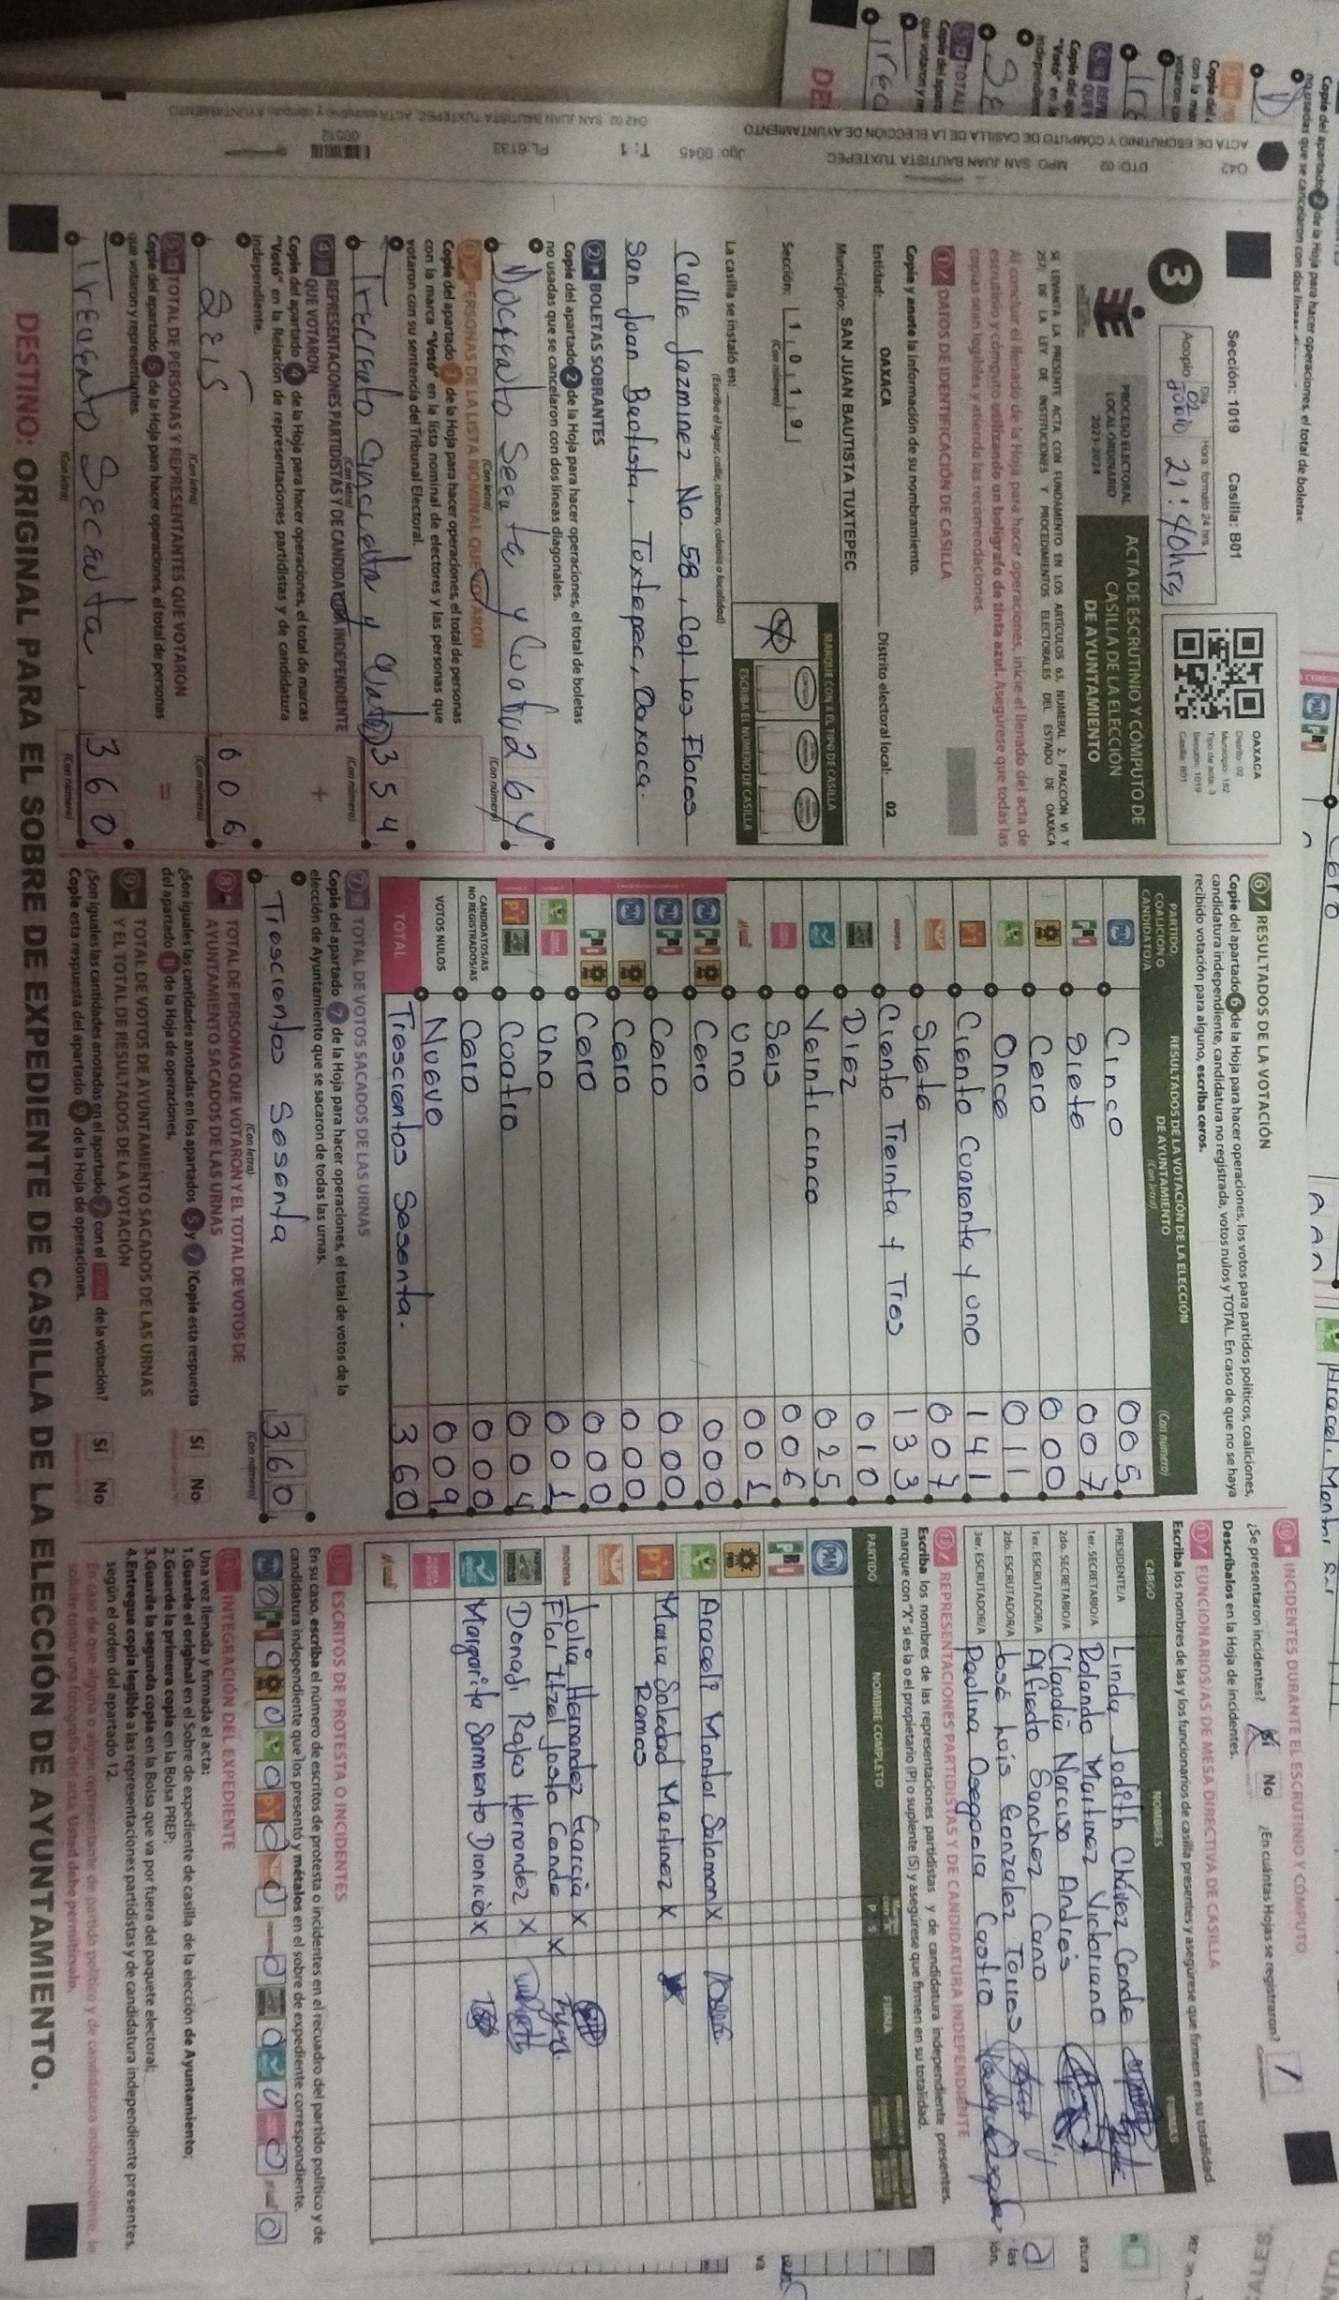 Sección: 1019 Casilla: B01
3
Acopio
Día
02
Junio
Hora: formato 24 hrs.
21:40hrs
OAXACA
Distrito: 02
Municipio: 182
Tipo de acta: 3
Sección: 1019
Casilla: B01
PROCESO ELECTORAL
LOCAL ORDINARIO
2023-2024
ACTA DE ESCRUTINIO Y CÓMPUTO DE
CASILLA DE LA ELECCIÓN
DE AYUNTAMIENTO
SE LEVANTA LA PRESENTE ACTA CON FUNDAMENTO EN LOS ARTÍCULOS 63, NUMERAL 2, FRACCIÓN VI Y
257; DE LA LEY DE INSTITUCIONES Y PROCEDIMIENTOS ELECTORALES DEL ESTADO DE OAXACA
Al concluir el llenado de la Hoja para hacer operaciones, inicie el llenado del acta de
escrutinio y cómputo utilizando un bolígrafo de tinta azul. Asegúrese que todas las
copias sean legibles y atienda las recomendaciones.
1 DATOS DE IDENTIFICACIÓN DE CASILLA
Copie y anote la información de su nombramiento.
Entidad: OAXACA Distrito electoral local: 02
Municipio: SAN JUAN BAUTISTA TUXTEPEC
Sección: 1 0 1 9
(Con número)
MARQUE CON X EL TIPO DE CASILLA
ESCRIBA EL NÚMERO DE CASILLA
La casilla se instaló en:
(Escriba el lugar, calle, número, colonia o localidad)
Calle Jazminez No. 58, Col Las Flores
San Juan Bautista, Tuxtepec, Oaxaca.
2 BOLETAS SOBRANTES
Copie del apartado 2 de la Hoja para hacer operaciones, el total de boletas
no usadas que se cancelaron con dos líneas diagonales.
(Con letra)
(Con número)
3 PERSONAS DE LA LISTA NOMINAL QUE VOTARON
Copie del apartado 3 de la Hoja para hacer operaciones, el total de personas
con la marca "Votó" en la lista nominal de electores y las personas que
votaron con su sentencia del Tribunal Electoral.
354
(Con letra)
(Con número)
4 REPRESENTACIONES PARTIDISTAS Y DE CANDIDATURA INDEPENDIENTE
QUE VOTARON
Copie del apartado 4 de la Hoja para hacer operaciones, el total de marcas
"Votó" en la Relación de representaciones partidistas y de candidatura
independiente.
+
Seis 006
(Con letra)
(Con número)
5 TOTAL DE PERSONAS Y REPRESENTANTES QUE VOTARON
Copie del apartado 5 de la Hoja para hacer operaciones, el total de personas
que votaron y representantes.
=
360
(Con letra)
(Con número)
6 RESULTADOS DE LA VOTACIÓN
Copie del apartado 6 de la Hoja para hacer operaciones, los votos para partidos políticos, coaliciones,
candidatura independiente, candidatura no registrada, votos nulos y TOTAL. En caso de que no se haya
recibido votación para alguno, escriba ceros.
PARTIDO,
COALICIÓN O
CANDIDATO/A
RESULTADOS DE LA VOTACIÓN DE LA ELECCIÓN
DE AYUNTAMIENTO
(Con letra)
(Con número)
Cinco 005
Siete 007
Cero 000
Once 011
Ciento Cuarenta y uno 141
Siete 007
Ciento Treinta y Tres 133
Diez 010
Veinti cinco 025
Seis 006
Uno 001
Cero 000
Cero 000
Cero 000
Cero 000
Uno 001
Cuatro 004
CANDIDATOS/AS
NO REGISTRADOS/AS
Cero 000
VOTOS NULOS Nueve 009
TOTAL Trescientos Sesenta. 360
7 TOTAL DE VOTOS SACADOS DE LAS URNAS
Copie del apartado 7 de la Hoja para hacer operaciones, el total de votos de la
elección de Ayuntamiento que se sacaron de todas las urnas.
Trescientos Sesenta 360
(Con letra)
(Con número)
8 TOTAL DE PERSONAS QUE VOTARON Y EL TOTAL DE VOTOS DE
AYUNTAMIENTO SACADOS DE LAS URNAS
¿Son iguales las cantidades anotadas en los apartados 5 y 7? Copie esta respuesta
del apartado 8 de la Hoja de operaciones.
Sí No
9 TOTAL DE VOTOS DE AYUNTAMIENTO SACADOS DE LAS URNAS
Y EL TOTAL DE RESULTADOS DE LA VOTACIÓN
¿Son iguales las cantidades anotadas en el apartado 7 con el TOTAL de la votación?
Copie esta respuesta del apartado 9 de la Hoja de operaciones.
Sí No
10 INCIDENTES DURANTE EL ESCRUTINIO Y CÓMPUTO
¿Se presentaron incidentes? Sí No ¿En cuántas Hojas se registraron? 1
Descríbalos en la Hoja de incidentes.
11 FUNCIONARIOS/AS DE MESA DIRECTIVA DE CASILLA
Escriba los nombres de las y los funcionarios de casilla presentes y asegúrese que firmen en su totalidad.
CARGO NOMBRES FIRMAS
PRESIDENTE/A Linda Judith Chávez Conde
1er. SECRETARIO/A Rolando Martinez Victoriano
2do. SECRETARIO/A Claudia Narciso Andres
1er. ESCRUTADOR/A Alfredo Sanchez Cano
2do. ESCRUTADOR/A José Luis Gonzalez Torres
3er. ESCRUTADOR/A Paulina Oseguera Castro
12 REPRESENTACIONES PARTIDISTAS Y DE CANDIDATURA INDEPENDIENTE
Escriba los nombres de las representaciones partidistas y de candidatura independiente presentes,
marque con "X" si es la o el propietario (P) o suplente (S) y asegúrese que firmen en su totalidad.
PARTIDO NOMBRE COMPLETO P S FIRMA
PAN
PRI
Araceli Montor Salamon X
Maria Soledad Martinez X
Ramos
morena
Julia Hernandez Garcia X
Flor Itzel Josta Conde X
Donaji Rojas Hernandez X
Margarita Sarmiento Dionicio X
13 ESCRITOS DE PROTESTA O INCIDENTES
En su caso, escriba el número de escritos de protesta o incidentes en el recuadro del partido político y de
candidatura independiente que los presentó y métalos en el sobre de expediente correspondiente.
0 0 0 0 0 0 0 0 0 0 0
14 INTEGRACIÓN DEL EXPEDIENTE
Una vez llenada y firmada el acta:
1.Guarde el original en el Sobre de expediente de casilla de la elección de Ayuntamiento;
2.Guarde la primera copia en la Bolsa PREP;
3.Guarde la segunda copia en la Bolsa que va por fuera del paquete electoral;
4.Entregue copia legible a las representaciones partidistas y de candidatura independiente presentes,
según el orden del apartado 12.
En caso de que alguna o algún representante de partido político y de candidatura independiente, le
solicite tomar una fotografía del acta, Usted debe permitírselo.
DESTINO: ORIGINAL PARA EL SOBRE DE EXPEDIENTE DE CASILLA DE LA ELECCIÓN DE AYUNTAMIENTO.
042 DTO: 02 MPO: SAN JUAN BAUTISTA TUXTEPEC
ACTA DE ESCRUTINIO Y CÓMPUTO DE CASILLA DE LA ELECCIÓN DE AYUNTAMIENTO
Jgo: 0045 T: 1 PL:6133
00512